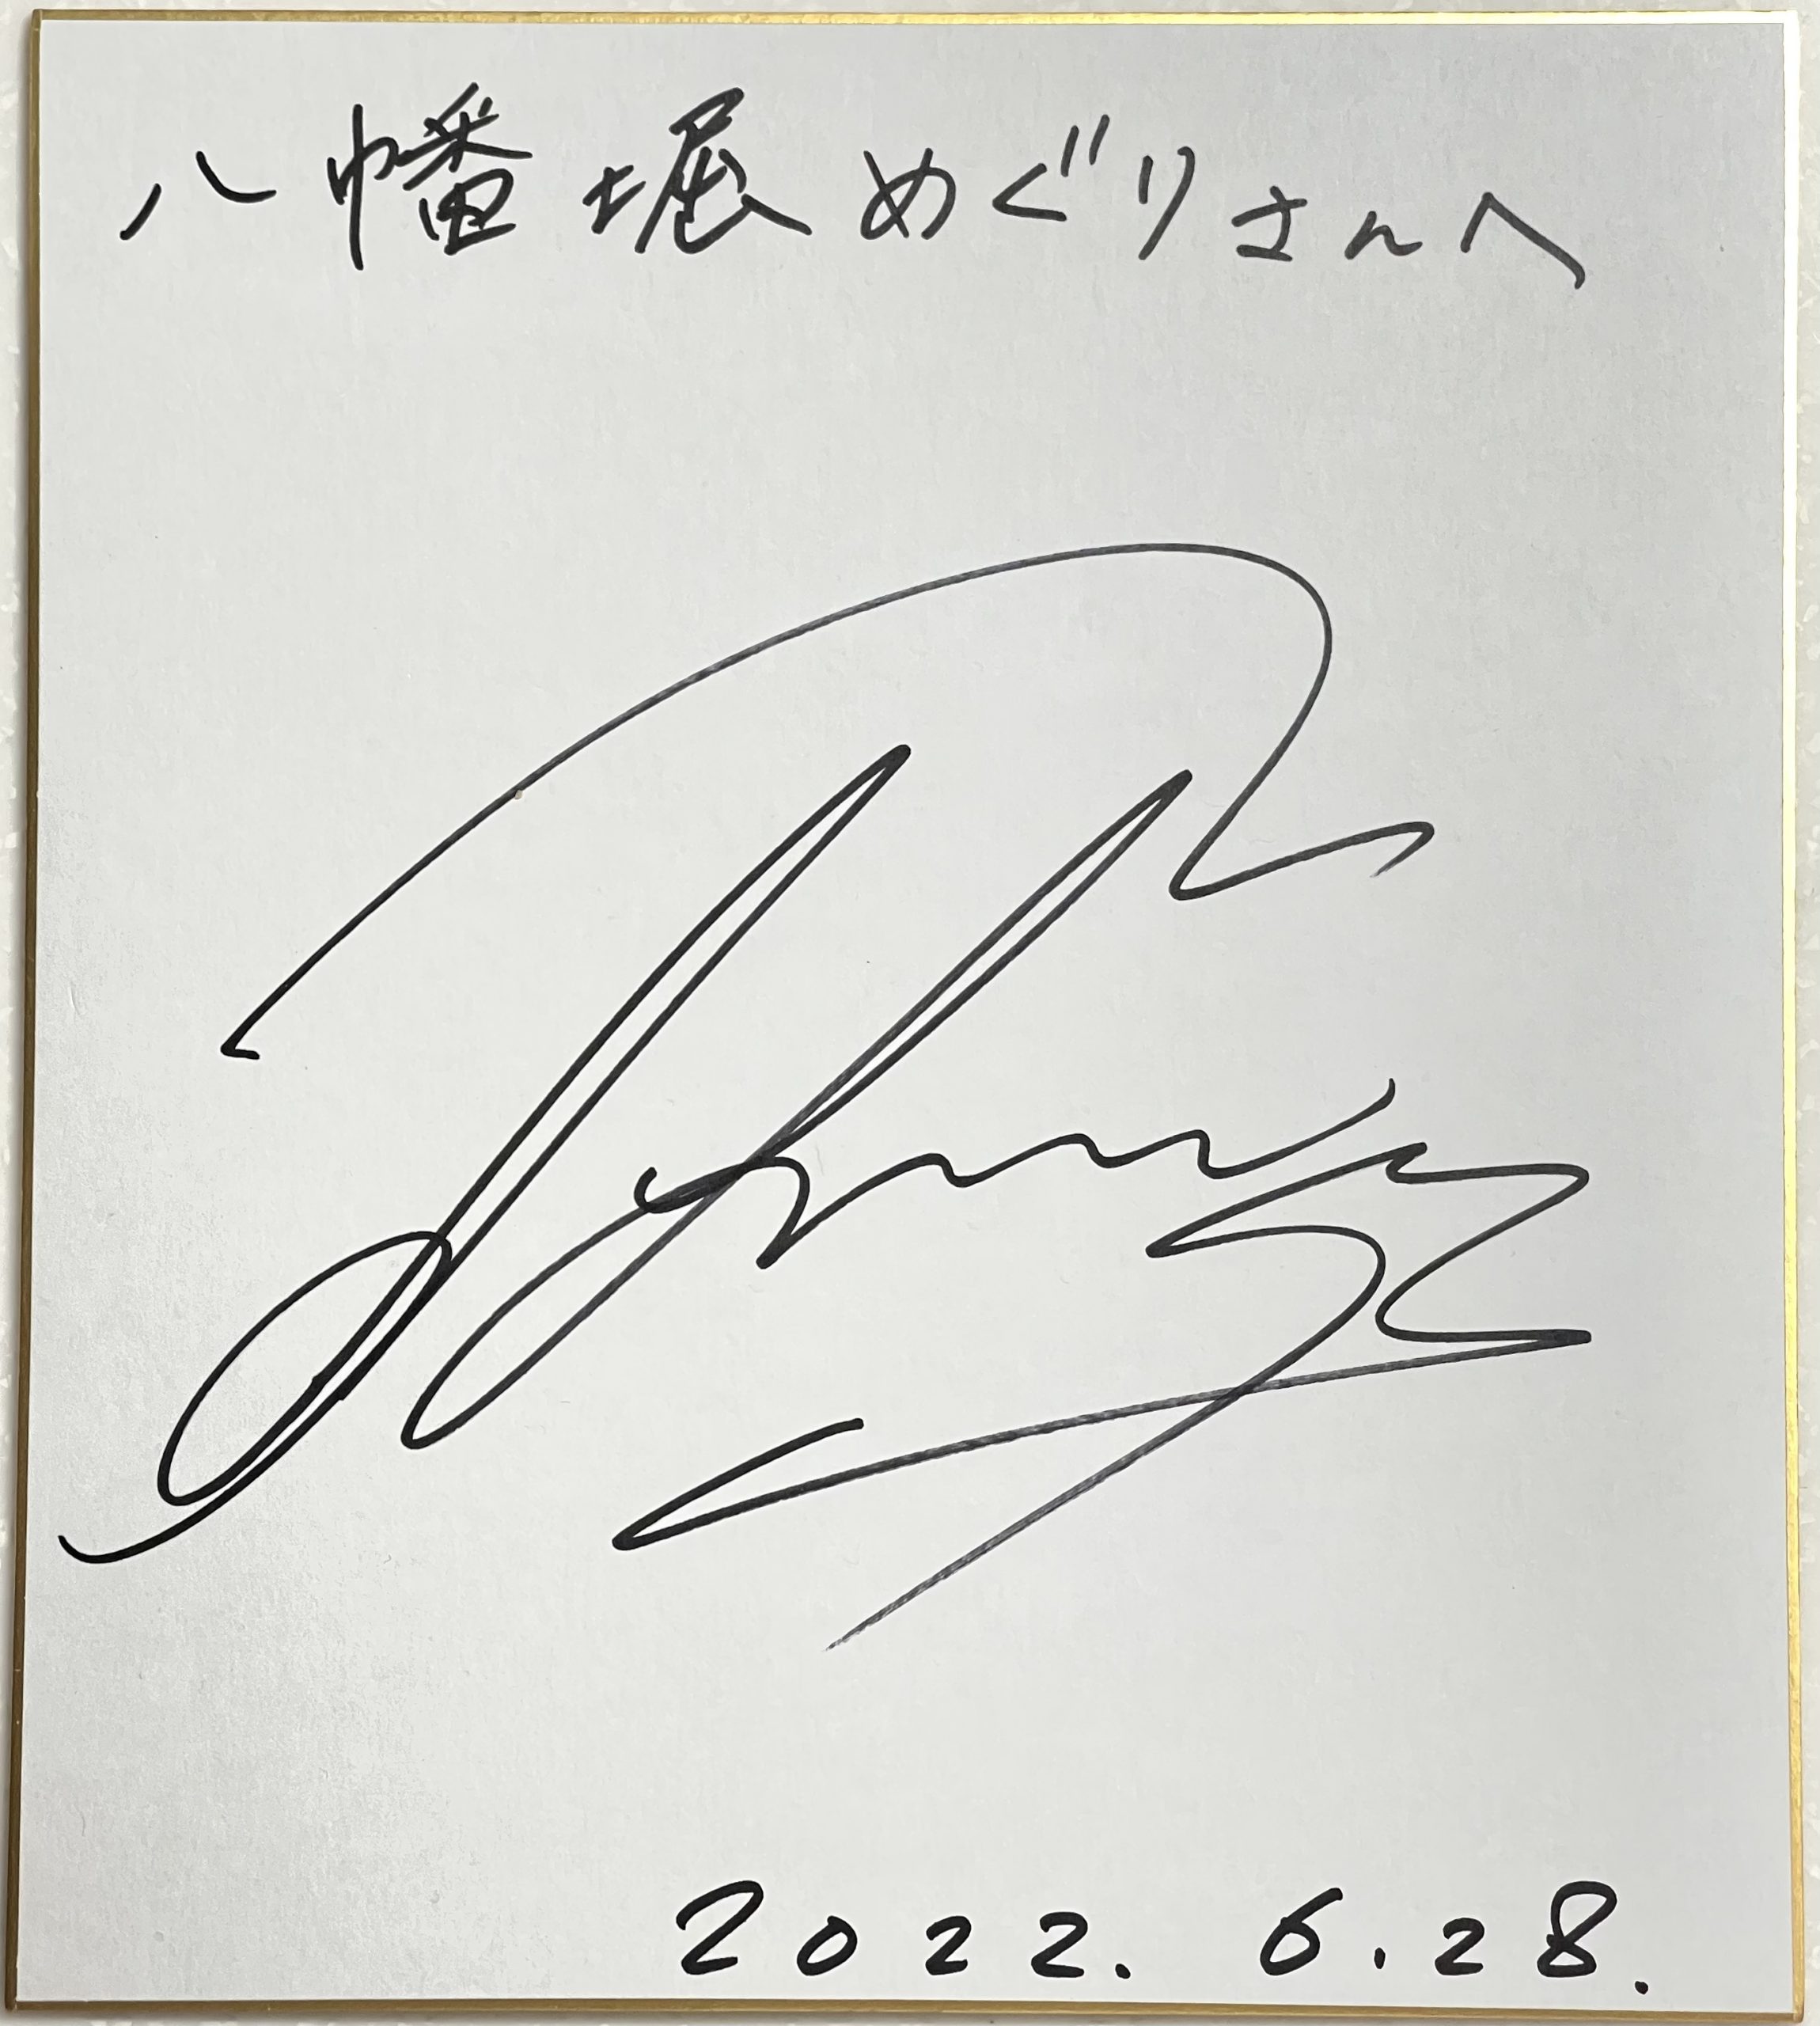 八幡堀めぐりさんへ
2022. 6.28.